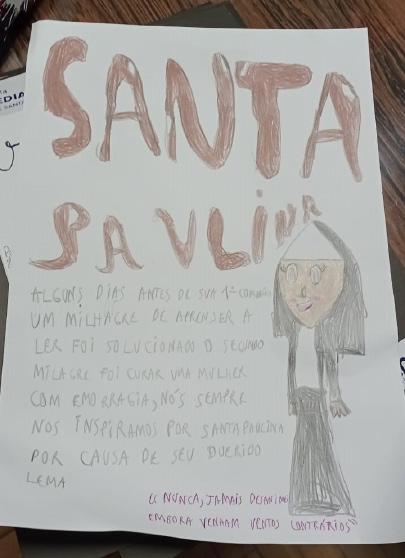 SANTA
PAULINA
ALGUNS DIAS ANTES DE SUA 1ª COMUNHÃO
UM MILHAGRE DE APRENSER A
LER FOI SOLUCIONADO O SEGUNDO
MILAGRE FOI CURAR UMA MULHER
COM EMORRAGIA, NÓS SEMPRE
NOS INSPIRAMOS POR SANTA PAULINA
POR CAUSA DE SEU QUERIDO
LEMA
"NUNCA, JAMAIS DESANIMO
EMBORA VENHAM VENTOS CONTRÁRIOS"
EDIA